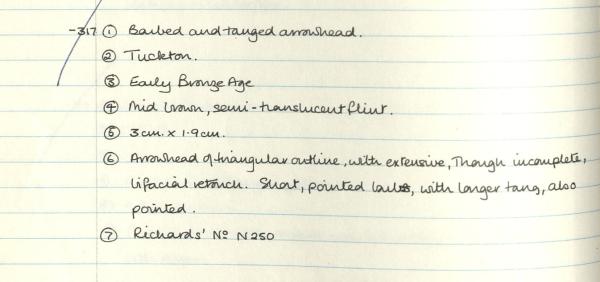 -317 ① Barbed and tanged arrowhead.
② Tuckton.
③ Early Bronze Age
④ Mid brown, semi-translucent flint.
⑤ 3cm. x 1.9cm.
⑥ Arrowhead of triangular outline, with extensive, Though incomplete,
bifacial retouch. Short, pointed barbs, with longer tang, also
pointed.
⑦ Richards' Nº N250